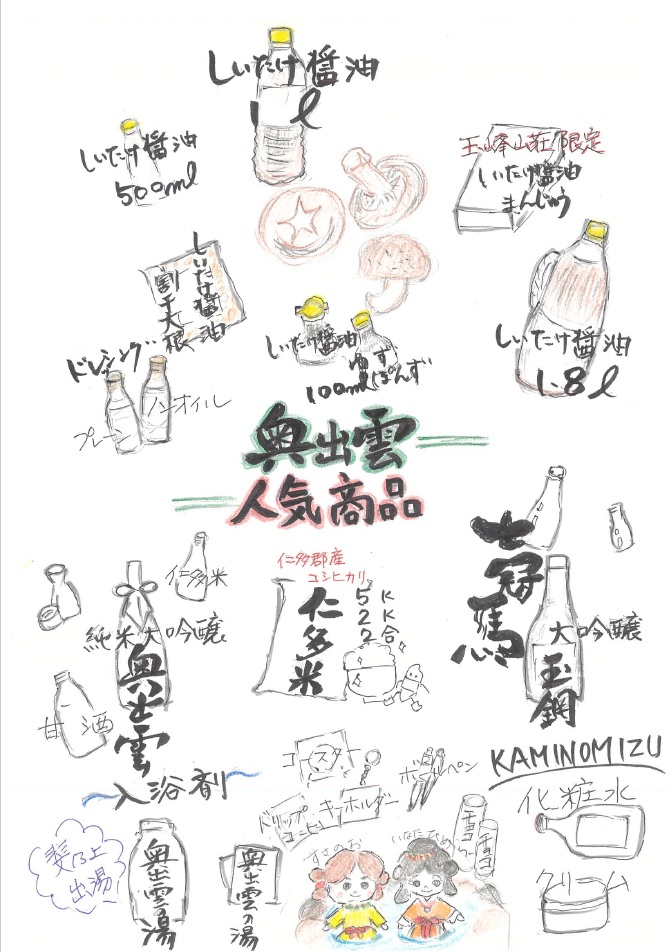 しいたけ醤油
1ℓ
しいたけ醤油
500mℓ
玉峰山荘限定
しいたけ醤油
まんじゅう
しいたけ醤油
割干大根
しいたけ醤油
100mℓ
ゆず
ぽんず
しいたけ醤油
1.8ℓ
ドレッシング
プレーン
ノンオイル
奥出雲
人気商品
仁多米
純米大吟醸
奥出雲
甘酒
仁多郡産
コシヒカリ
仁多米
5K
2K
2合
七冠馬
大吟醸
玉鋼
入浴剤
斐乃上
出湯
奥出雲の湯
奥出雲の湯
コースター
キーホルダー
ボールペン
ドリップ
コーヒー
すさのお
いなたひめ
チョコ
チョコ
KAMINOMIZU
化粧水
クリーム